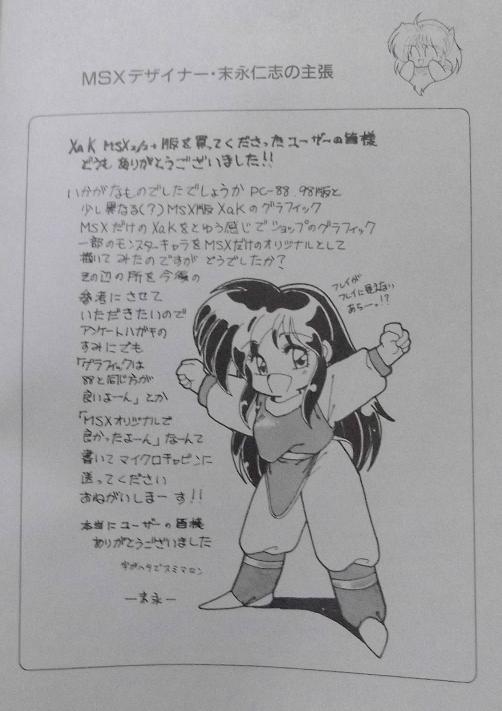 MSXデザイナー・末永仁志の主張
XaK MSX2/2+版を買ってくださったユーザーの皆様
どうもありがとうございました!!
いかがなものでしたでしょうか PC-88、98版と
少し異なる(?)MSX版XaKのグラフィック
MSXだけのXaKをとゆう感じでショップのグラフィック
一部のモンスターキャラをMSXだけのオリジナルとして
描いてみたのですが どうでしたか?
その辺の所を今後の
参考にさせて
いただきたいので
アンケートハガキの
すみにでも
「グラフィックは
88と同じ方が
良いよーん」とか
「MSXオリジナルで
良かったよーん」なーんて
書いてマイクロキャビンに
送ってください
おねがいしまーす!!
本当にユーザーの皆様
ありがとうございました
字がヘタでスミマロン
―末永―
フレイが
フレイに見えない
あちー。!?